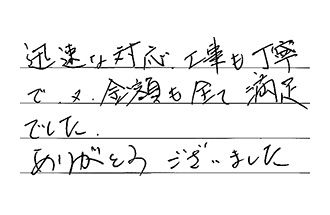 迅速な対応、工事も丁寧
で、又、金額も全て満足
でした.
ありがとうございました